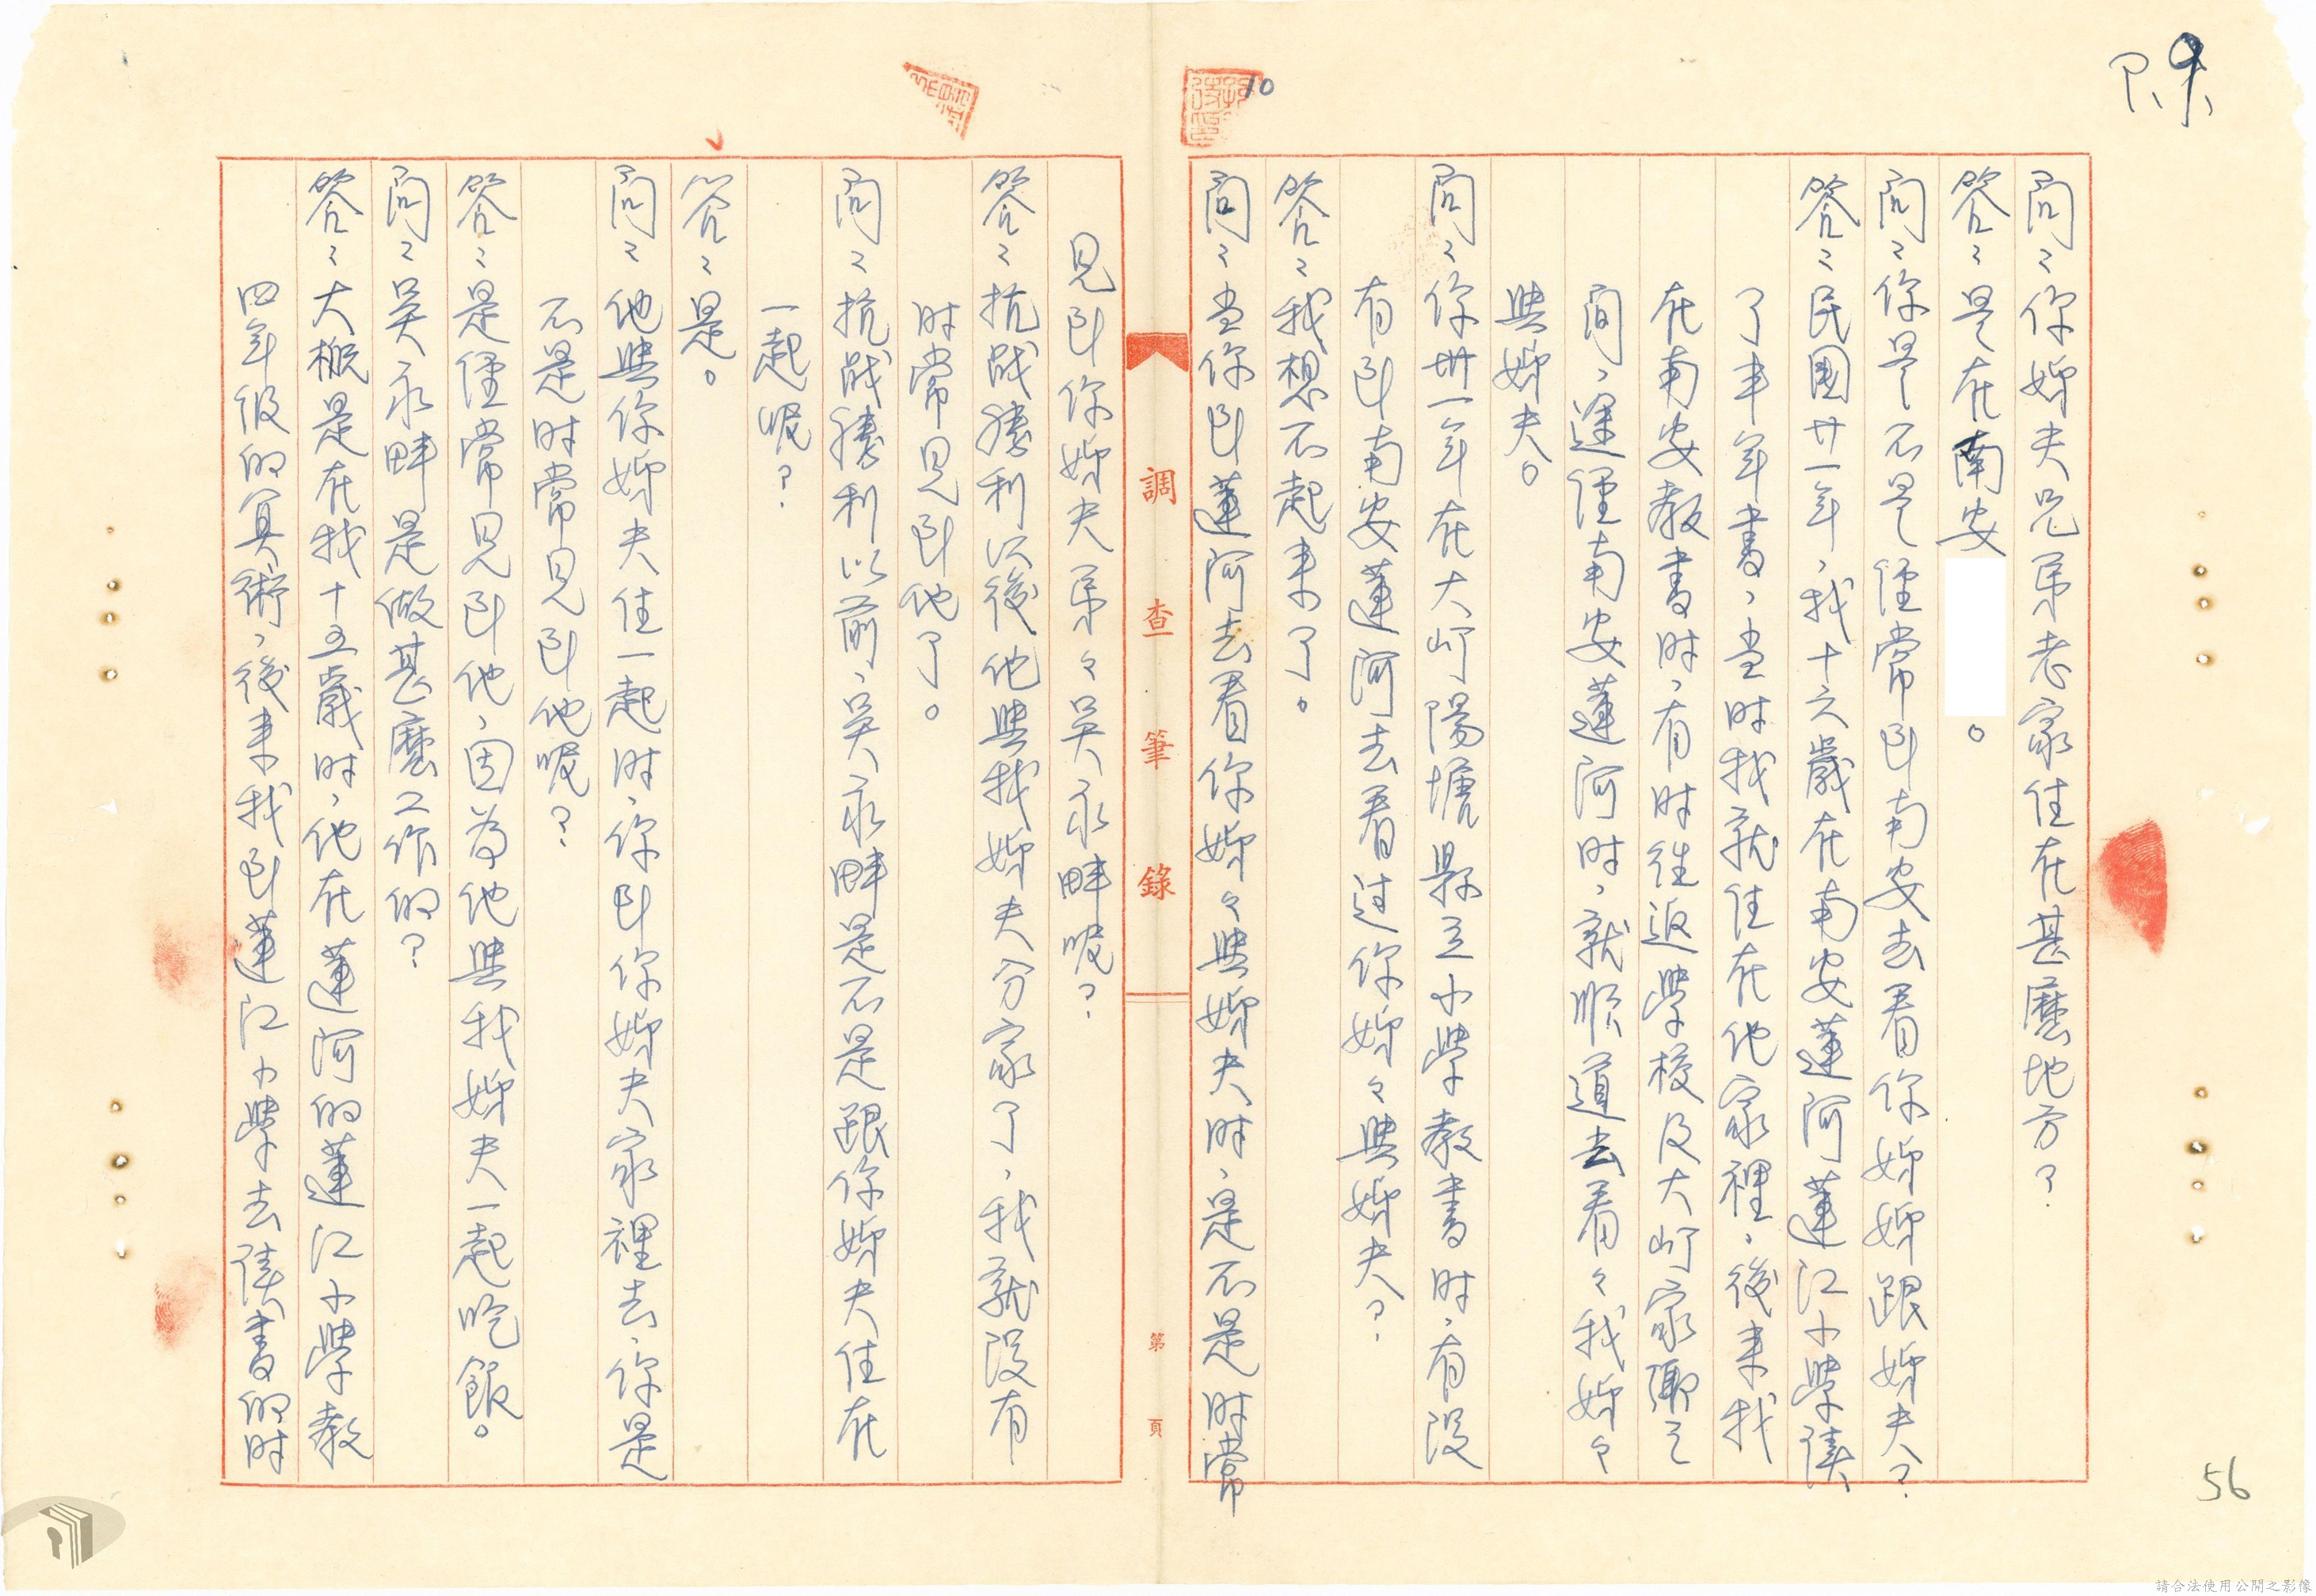 10
56
問：你姊夫兄弟老家住在甚麼地方？
答：是在南安　　　。
問：你是不是經常到南安去看你姊姊跟姊夫？
答：民國廿一年，我十六歲在南安蓮河蓮江小學讀
了半年書，当时我就住在他家裡，後来我
在南安教書时，有时往返學校及大嶝家鄉之
間，途經南安蓮河时，就順道去看々我姊々
與姊夫。
問：你卅一年在大嶝陽塘縣立小學教書时，有没
有到南安蓮河去看过你姊々與姊夫？
答：我想不起来了。
問：当你到蓮河去看你姊々與姊夫时，是不是时常
調查筆錄
第　頁
見到你姊夫弟々吳永畔呢？
答：抗战勝利以後他與我姊夫分家了，我就没有
时常見到他了。
問：抗战勝利以前，吳永畔是不是跟你姊夫住在
一起呢？
答：是。
問：他與你姊夫住一起时，你到你姊夫家裡去，你是
不是时常見到他呢？
答：是經常見到他，因為他與我姊夫一起吃飯。
問：吳永畔是做甚麼工作的？
答：大概是在我十五歲时，他在蓮河的蓮江小學教
四年级的算術，後来我到蓮江小學去讀書的时
請合法使用公開之影像